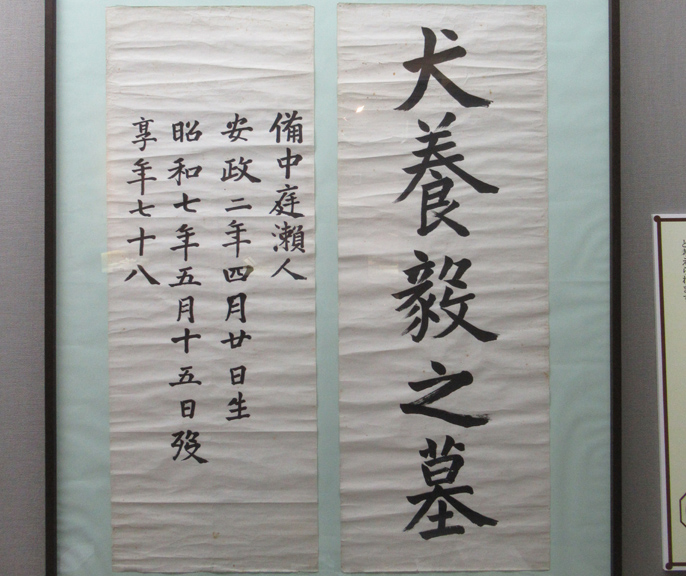 犬養毅之墓
備中庭瀬人
安政二年四月廿日生
昭和七年五月十五日歿
享年七十八